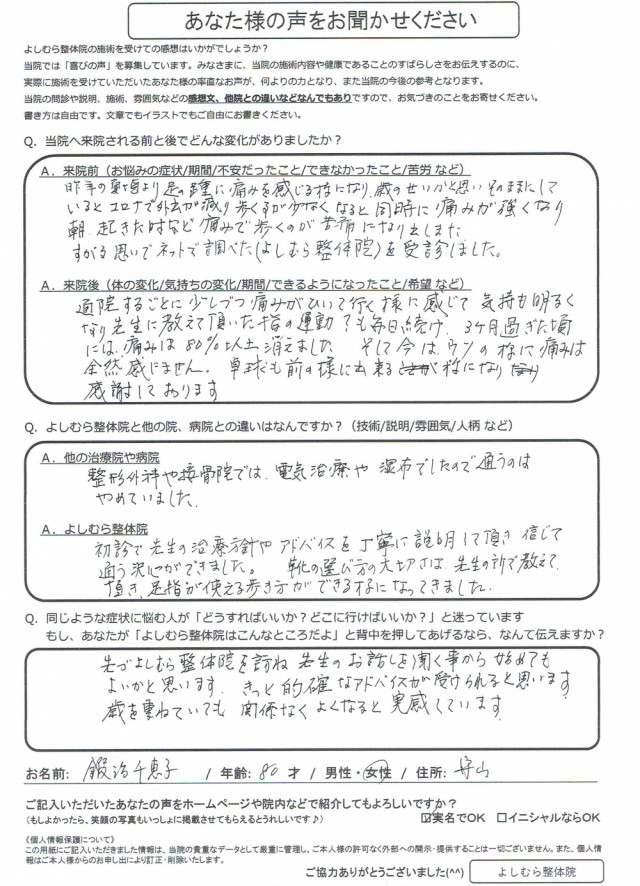 あなた様の声をお聞かせください
よしむら整体院の施術を受けての感想はいかがでしょうか?
当院では「喜びの声」を募集しています。みなさまに、当院の施術内容や健康であることのすばらしさをお伝えするのに、
実際に施術を受けていただいたあなた様の率直なお声が、何よりの力となり、また当院の今後の参考となります。
当院の問診や説明、施術、雰囲気などの感想文、他院との違いなどなんでもありですので、お気づきのことをお寄せください。
書き方は自由です。文章でもイラストでもご自由にお書きください。
Q. 当院へ来院される前と後でどんな変化がありましたか?
A. 来院前(お悩みの症状/期間/不安だったこと/できなかったこと/苦労 など)
昨年の夏頃より足の踵に痛みを感じる様になり、歳のせいかと思いそのままにして
いるとコロナで外出が減り歩くことが少なくなると同時に痛みが強くなり
朝起きた時など痛みで歩くのが苦痛になり出しました
すがる思いでネットで調べた(よしむら整体院)を受診しました。
A. 来院後(体の変化/気持ちの変化/期間/できるようになったこと/希望 など)
通院するごとに少しづつ痛みがひいて行く様に感じて 気持も明るく
なり先生に教えて頂いた 運動?も毎日続け、3ヶ月過ぎた頃
には、痛みは80%以上消えました そして今は、ウソの様に痛みは
全然感じません。卓球も前の様に出来る 様になり
感謝しております
Q. よしむら整体院と他の院、病院との違いはなんですか?(技術/説明/雰囲気/人柄 など)
A. 他の治療院や病院
整形外科や接骨院では、電気治療や 湿布でしたので通うのは
やめていました。
A. よしむら整体院
初診で先生の治療方針やアドバイスを丁寧に説明して頂き 信じて
通う決心ができました。 靴の選び方の大切さは、先生の所で教えて
頂き、足指が使える歩き方ができる様になってきました。
Q. 同じような症状に悩む人が「どうすればいいか?どこに行けばいいか?」と迷っています
もし、あなたが「よしむら整体院はこんなところだよ」と背中を押してあげるなら、なんて伝えますか?
先づよしむら整体院を訪ね 先生のお話しを聞く事から始めても
よいかと思います。きっと的確なアドバイスが受けられると思います
歳を重ねていても 関係なくよくなると実感しています
お名前: 鍜治千恵子 / 年齢: 80 才 / 男性・女性 / 住所: 守山
ご記入いただいたあなたの声をホームページや院内などで紹介してもよろしいですか?
(もしよかったら、笑顔の写真もいっしょに掲載させてもらえるとうれしいです♪) ☑実名でOK □イニシャルならOK
《個人情報保護について》
この用紙にご記入いただきました情報は、当院の貴重なデータとして厳重に管理し、ご本人様の許可なく外部への開示・提供することは一切ございません。また、個人情
報はご本人様からのお申し出により訂正・削除いたします。
ご協力ありがとうございました(^^) よしむら整体院